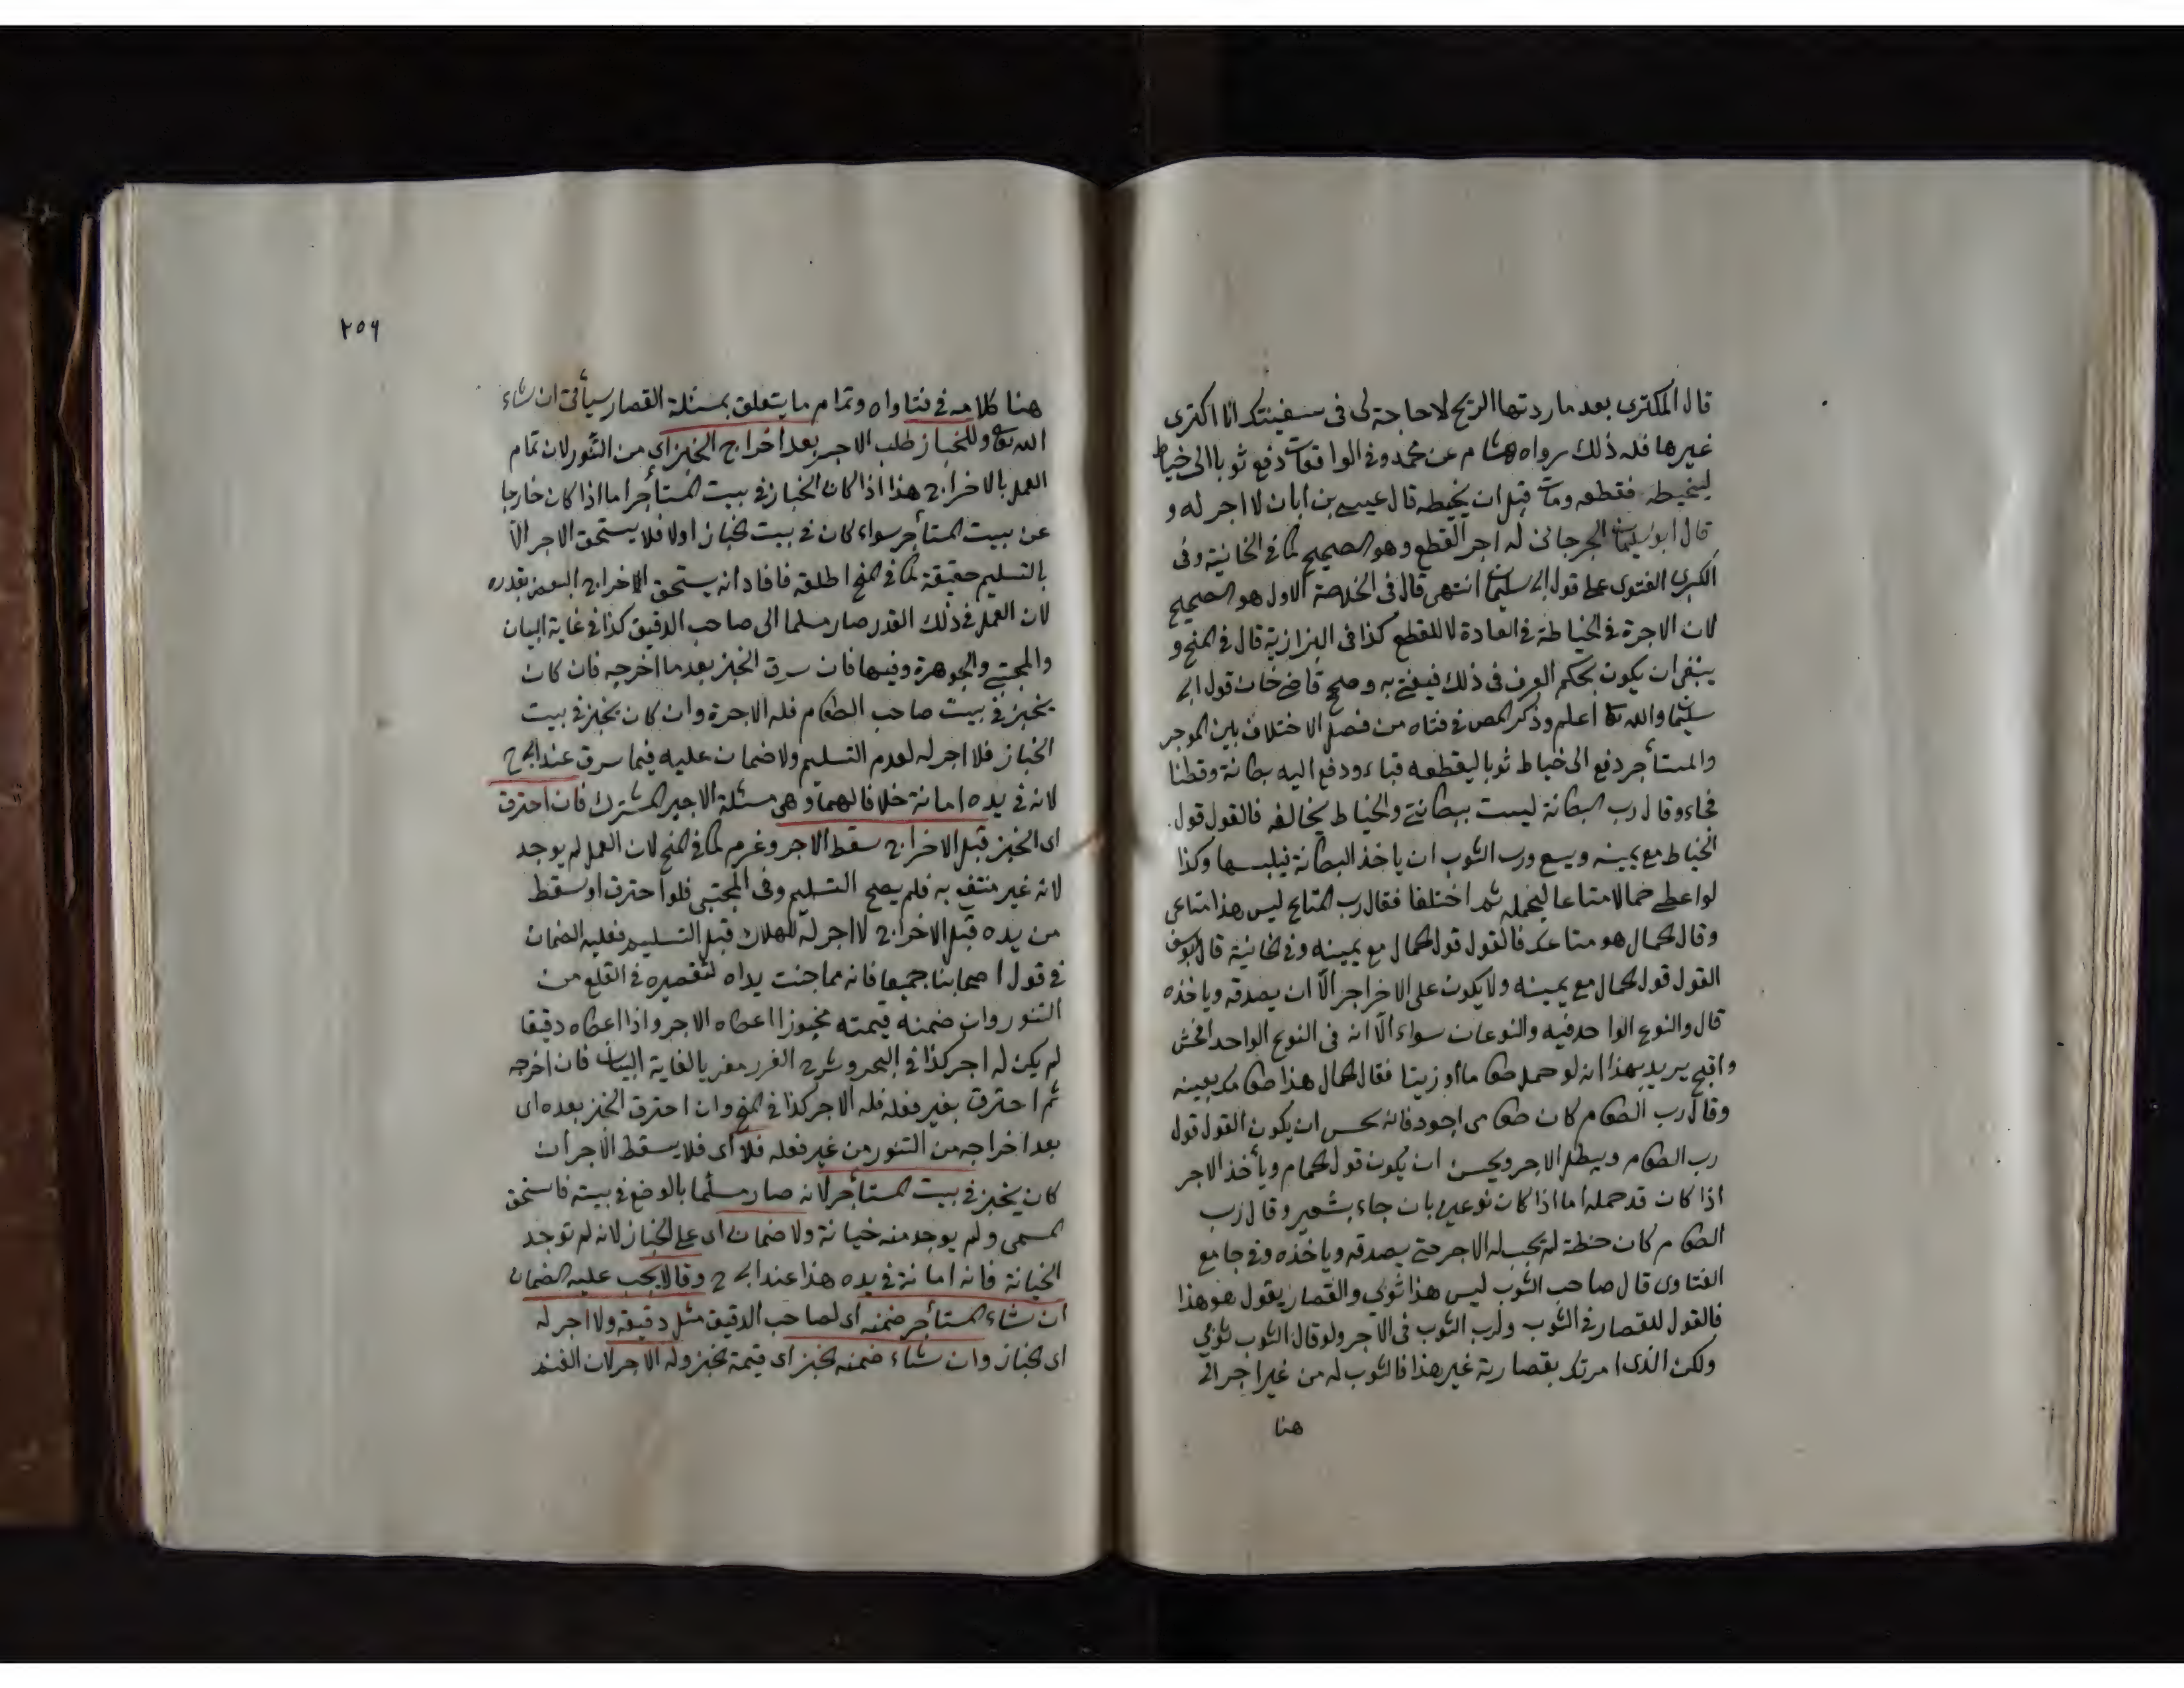 قال المكترى بعد ما ردتها الريح لا حاجة لى فى سفينتك انا اكترى
غيرها فله ذلك رواه هشام عن محمد وفى الواقعات دفع ثوبا الى خياط
ليخيطه فقطعه ومات قبل ان يخيطه قال عيسى بن ابان لا اجر له و
قال ابو سليمان الجرجانى له اجر القطع وهو الصحيح كما فى الخانية وفى
الكبرى الفتوى على قول ابى سليمان انتهى قال فى الخلاصة الاول هو الصحيح
لان الاجرة فى الخياطة فى العادة لا للقطع كذا فى البزازية قال فى المنح و
ينبغى ان يكون بحكم العرف فى ذلك فيفتى به وصحح قاضى خان قول ابى
سليمان والله تعا اعلم وذكر المص فى فتاه من فصل الاختلاف بين الموجر
والمستأجر دفع الى خياط ثوبا ليقطعه قباء ودفع اليه بطانة وقطنا
فجاء وقال رب البطانة ليست ببطانتى والخياط يخالفه فالقول قول
الخياط مع يمينه ويسع ورب الثوب ان ياخذ البطانة فيلبسها وكذا
لو اعطى حمالا متاعا ليحمله ثم اختلفا فقال رب المتاع ليس هذا متاعى
وقال الحمال هو متاعك فالقول قول الحمال مع يمينه وفى الخانية قال ابو يوسف
القول قول الحمال مع يمينه ولا يكون على الاخر اجر الّا ان يصدقه وياخذه
قال والنوع الواحد فيه والنوعان سواء الّا انه فى النوع الواحد افحش
واقبح يريد بهذا انه لو حمل طعاما او زيتا فقال الحمال هذا طعامك بعينه
وقال رب الطعام كان طعامى اجود فانه يحسن ان يكون القول قول
رب الطعام ويبطل الاجر ويحسن ان يكون قول الحمام ويأخذ الاجر
اذا كان قد حمله اما اذا كان نوعين بان جاء بشعير وقال رب
الطعام كان حنطة لم يجب له الاجر حتى يصدقه وياخذه وفى جامع
الفتاوى قال صاحب الثوب ليس هذا ثوبى والقصار يقول هو هذا
فالقول للقصار فى الثوب ولرب الثوب فى الاجر ولو قال الثوب ثوبى
ولكن الذى امرتك بقصارته غير هذا فالثوب له من غير اجر الى
هنا
٢٥٦
هنا كلامه فى فتاواه وتمام ما يتعلق بمسئلة القصار سيأتى ان شاء
الله تعا وللخباز طلب الاجر بعد اخراج الخبز اى من التنور لان تمام
العمل بالاخراج هذا اذا كان الخباز فى بيت المستأجر اما اذا كان خارجا
عن بيت المستأجر سواء كان فى بيت الخباز اولا فلا يستحق الاجر الّا
بالتسليم حقيقة كما فى المنح اطلقه فافاد انه يستحق باخراج البعض بقدره
لان العمل فى ذلك القدر صار مسلما الى صاحب الدقيق كذا فى غاية البيان
والمجتبى والجوهرة وفيها فان سرق الخبز بعد ما اخرجه فان كان
يخبز فى بيت صاحب الطعام فله الاجرة وان كان يخبز فى بيت
الخباز فلا اجر له لعدم التسليم ولا ضمان عليه فيما سرق عند ابى ح
لانه فى يده امانة خلافا لهما وهى مسئلة الاجير المشترك فان احترق
اى الخبز قبل الاخراج سقط الاجر وغرم كما فى المنح لان العمل لم يوجد
لانه غير منتفع به فلم يصح التسليم وفى المجتبى فلو احترق او سقط
من يده قبل الاخراج لا اجر له للهلاك قبل التسليم فعليه الضمان
فى قول اصحابنا جميعا فانه مما جنت يداه لتقصيره فى القلع من
التنور وان ضمنه قيمته مخبوزا اعطاه الاجر واذا اعطاه دقيقا
لم يكن له اجر كذا فى البحر وشرح الغرر معزيا لغاية البيان فان اخرجه
ثم احترق بغير فعله فله الاجر كذا فى المنح وان احترق الخبز بعده اى
بعد اخراجه من التنور من غير فعله فلا اى فلا يسقط الاجر ان
كان يخبز فى بيت المستأجر لانه صار مسلما بالوضع فى بيته فاستحق
المسمى ولم يوجد منه خيانة ولا ضمان اى على الخباز لانه لم توجد
الخيانة فانه امانة فى يده هذا عند ابى ح وقالا يجب عليه الضمان
ان شاء المستأجر ضمنه اى لصاحب الدقيق مثل دقيقه ولا اجر له
اى الخباز وان شاء ضمنه الخبز اى قيمة الخبز وله الاجر لان